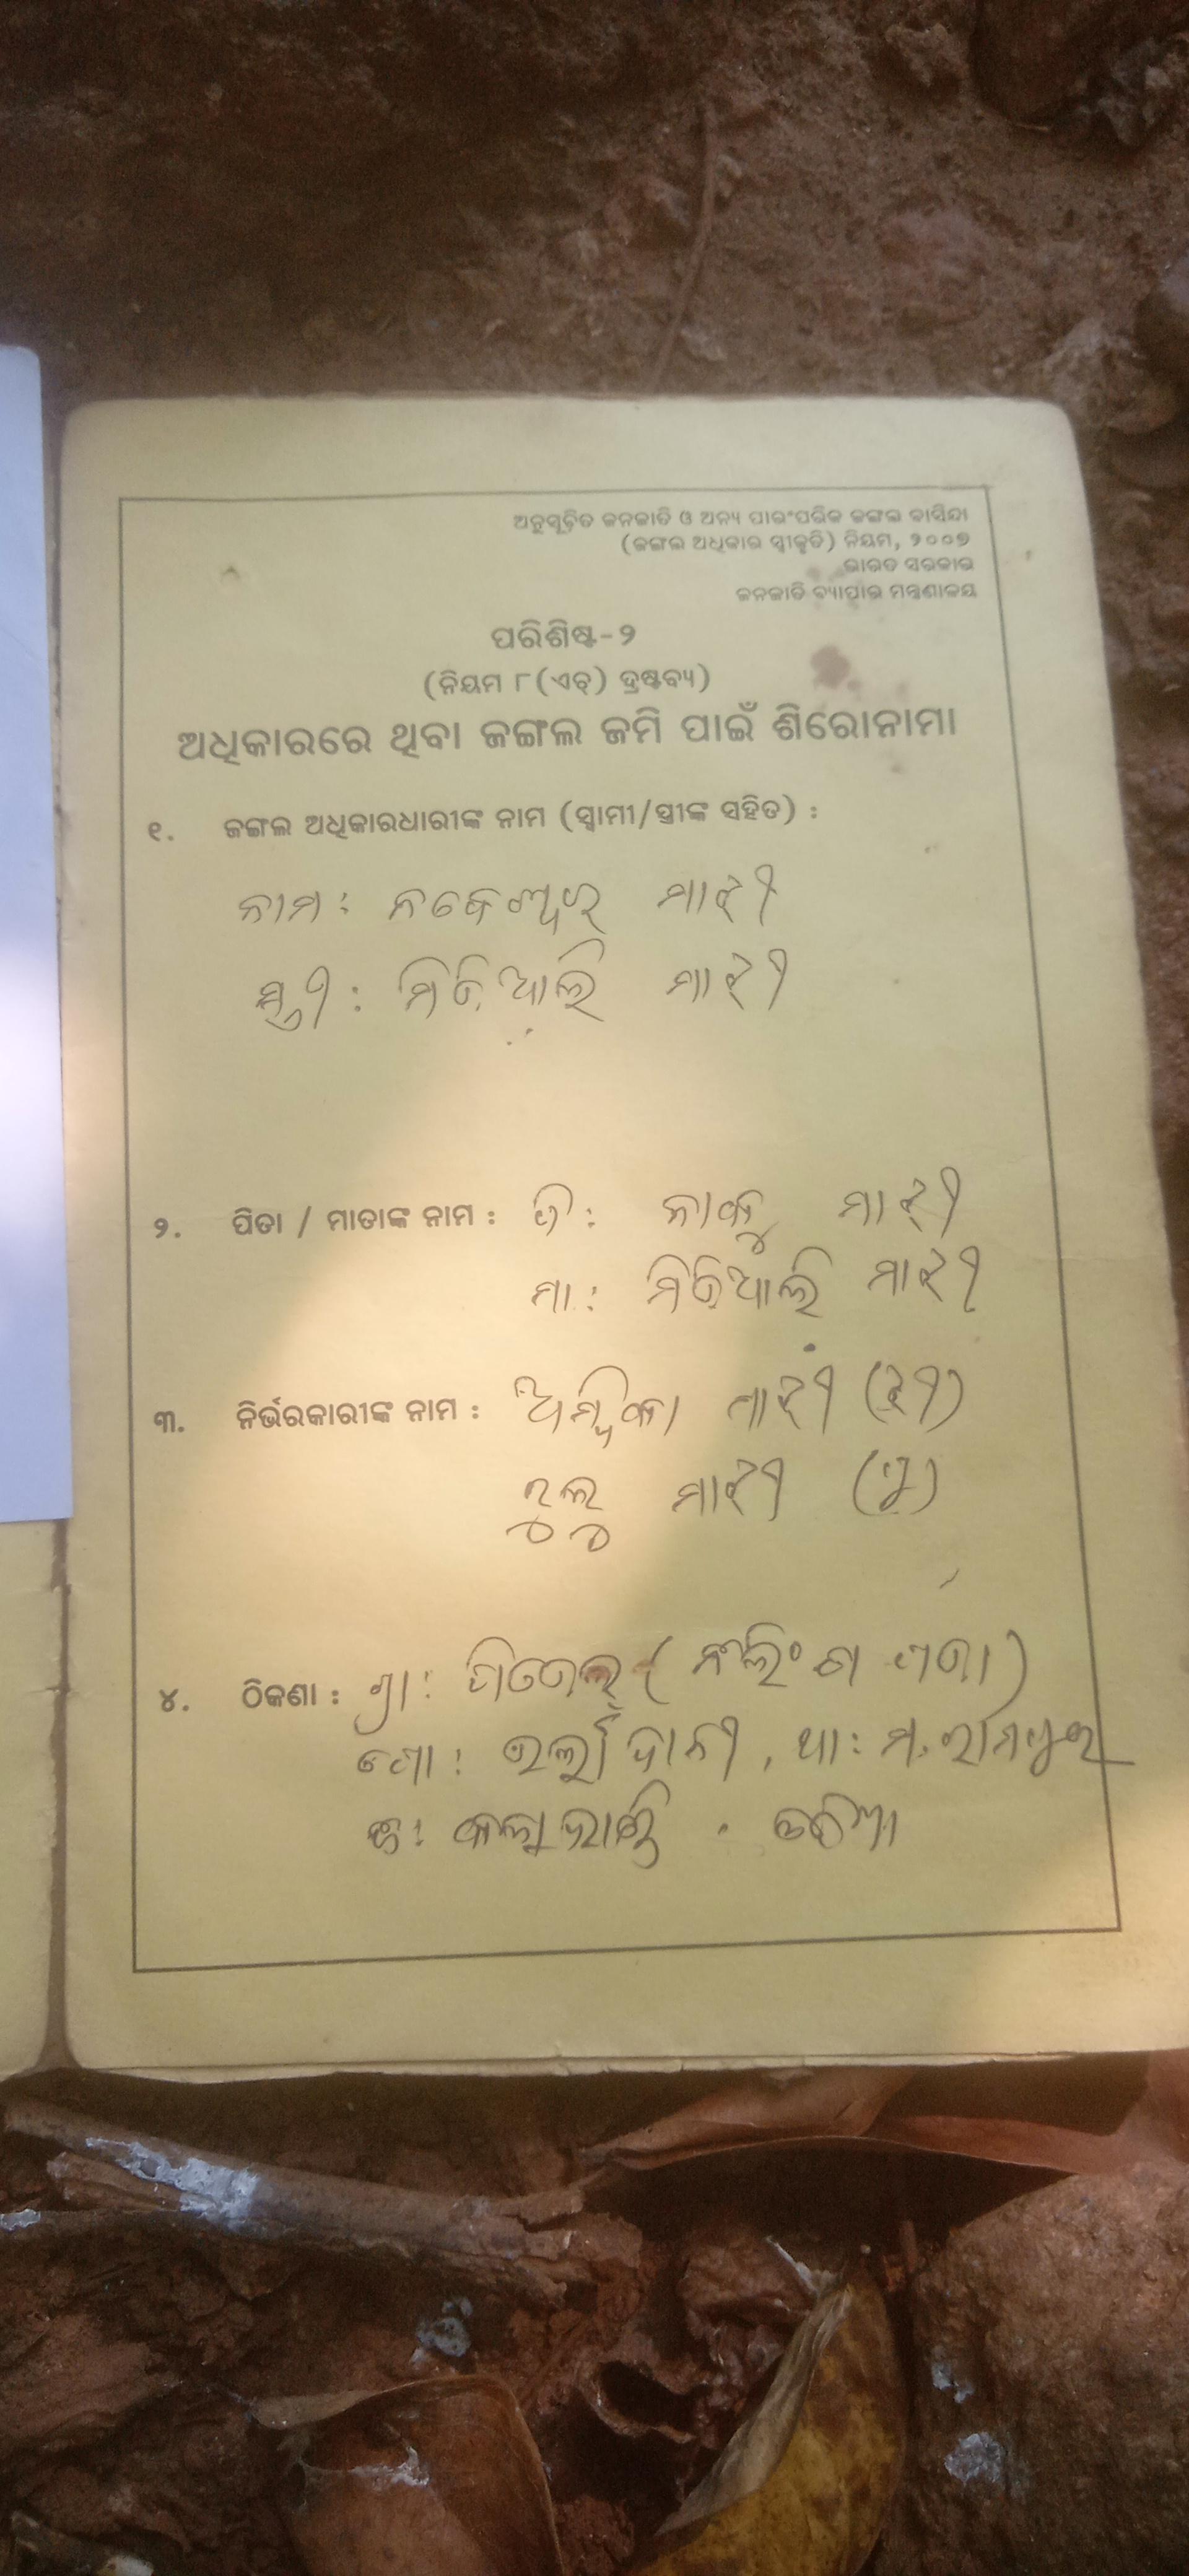 ଅନୁସୂଚିତ ଜନଜାତି ଓ ଅନ୍ୟ ପାରଂପରିକ ଜଙ୍ଗଲ ବାସିନ୍ଦା
(ଜଙ୍ଗଲ ଅଧିକାର ସ୍ୱୀକୃତି) ନିୟମ, ୨୦୦୭
ଭାରତ ସରକାର
ଜନଜାତି ବ୍ୟାପାର ମନ୍ତ୍ରଣାଳୟ
ପରିଶିଷ୍ଟ-୨
(ନିୟମ ୮(ଏଚ୍) ଦ୍ରଷ୍ଟବ୍ୟ)
ଅଧିକାରରେ ଥିବା ଜଙ୍ଗଲ ଜମି ପାଇଁ ଶିରୋନାମା
୧. ଜଙ୍ଗଲ ଅଧିକାରଧାରୀଙ୍କ ନାମ (ସ୍ୱାମୀ/ସ୍ତ୍ରୀଙ୍କ ସହିତ) :
ନାମ: ମାଝୀ
ସ୍ତ୍ରୀ: ମାଝୀ
୨. ପିତା / ମାତାଙ୍କ ନାମ : ମାଝୀ
ମା: ମାଝୀ
୩. ନିର୍ଭରକାରୀଙ୍କ ନାମ : ଅମ୍ବିକା ମାଝୀ (ଝୀ)
ମାଝୀ (ପୁ)
୪. ଠିକଣା : ଗ୍ରା:
ପୋ: ଥା: ମ. ରାମପୁର
କଳାହାଣ୍ଡି . ଓଡିଶା